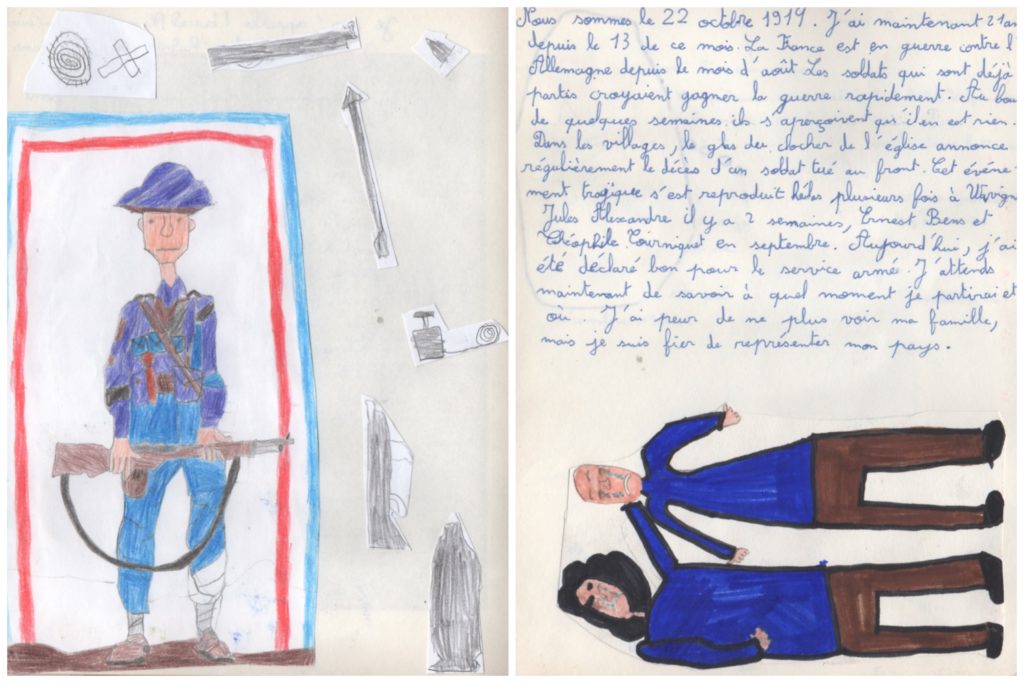 Nous sommes le 22 octobre 1914. J'ai maintenant 21 an
depuis le 13 de ce mois. La France est en guerre contre l'
Allemagne depuis le mois d'août Les soldats qui sont déjà
partis croyaient gagner la guerre rapidement. Au bou
de quelques semaines, ils s'aperçoivent qu'il en est rien.
Dans les villages, le glas du clocher de l'église annonce
régulièrement le décès d'un soldat tué au front. Cet événe-
ment tragique s'est reproduit hélas plusieurs fois à
Jules Alexandre il y a 2 semaines, Ernest Bens et
Théophile Tourniquet en septembre. Aujourd'hui, j'ai
été déclaré bon pour le service armé. J'attends
maintenant de savoir à quel moment je partirai et
où ... J'ai peur de ne plus voir ma famille,
mais je suis fier de représenter mon pays.